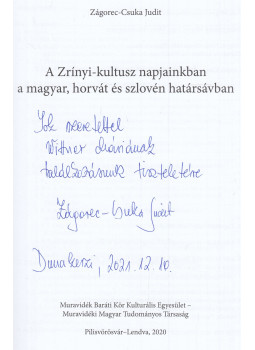 Zágorec-Csuka Judit
A Zrínyi-kultusz napjainkban
a magyar, horvát és szlovén határsávban
Sok szeretettel
Wittner Máriának
találkozásunk tiszteletére
Zágorec-Csuka Judit
Dunakeszi, 2021. 12. 10.
Muravidék Baráti Kör Kulturális Egyesület –
Muravidéki Magyar Tudományos Társaság
Pilisvörösvár–Lendva, 2020